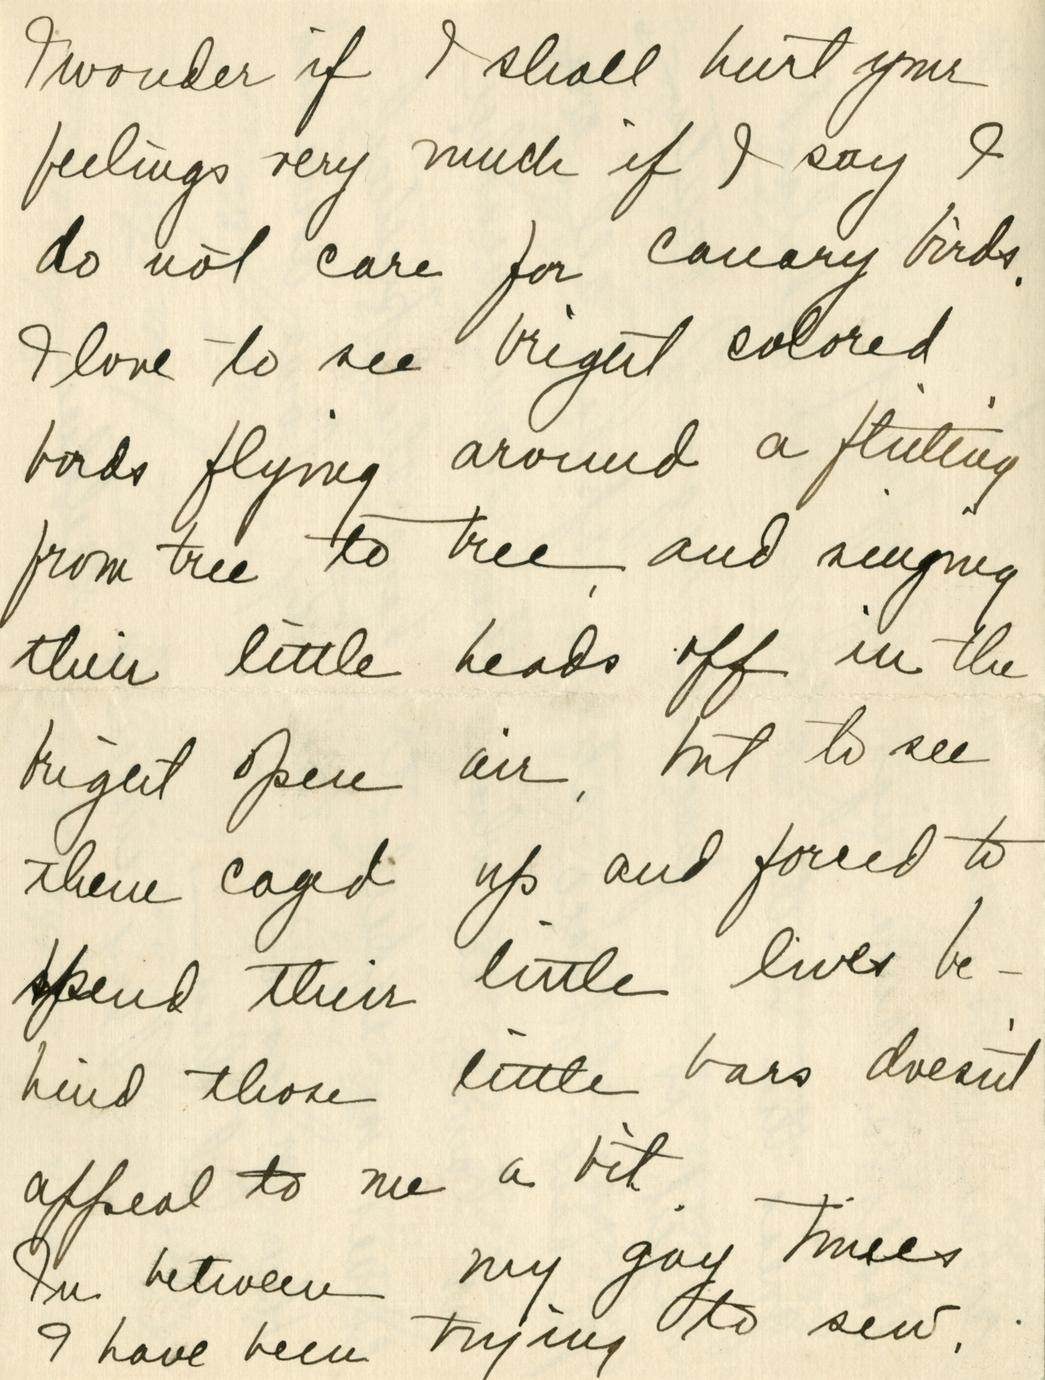 I wonder if I shall hurt your
feelings very much if I say I
do not care for canary birds.
I love to see bright colored
birds flying around a flitting
from tree to tree, and singing
their little heads off in the
bright open air, but to see
them caged up and forced to
spend their little lives be-
hind those little bars doesn't
appeal to me a bit.
In between my gay times
I have been trying to sew.